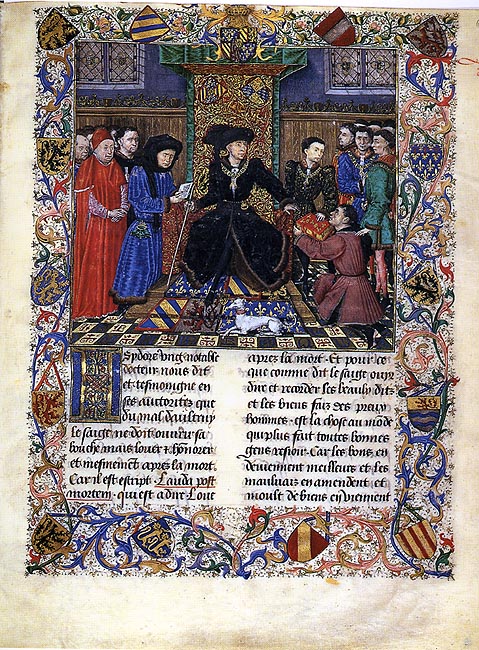 Isydore ung notable
docteur nous dit
et tesmoingne en
ses auctoritez que
du mal daultruy
le saige ne doit ouurir sa
bouche mais louer & honorer
et mesmement apres la mort
Car il est escript Lauda post
mortem. qui est a dire Loue
apres la mort. Et pour ce
que comme dit le saige ouyr
dire et recorder les beaulx ditz
et les biens faiz des preux
hommes. est la chose au monde
qui plus fait toutes bonnes
gens resioir. Car les bons en
deuiennent meilleurs et les
mauluais en amendent. et
moult de biens en viennent